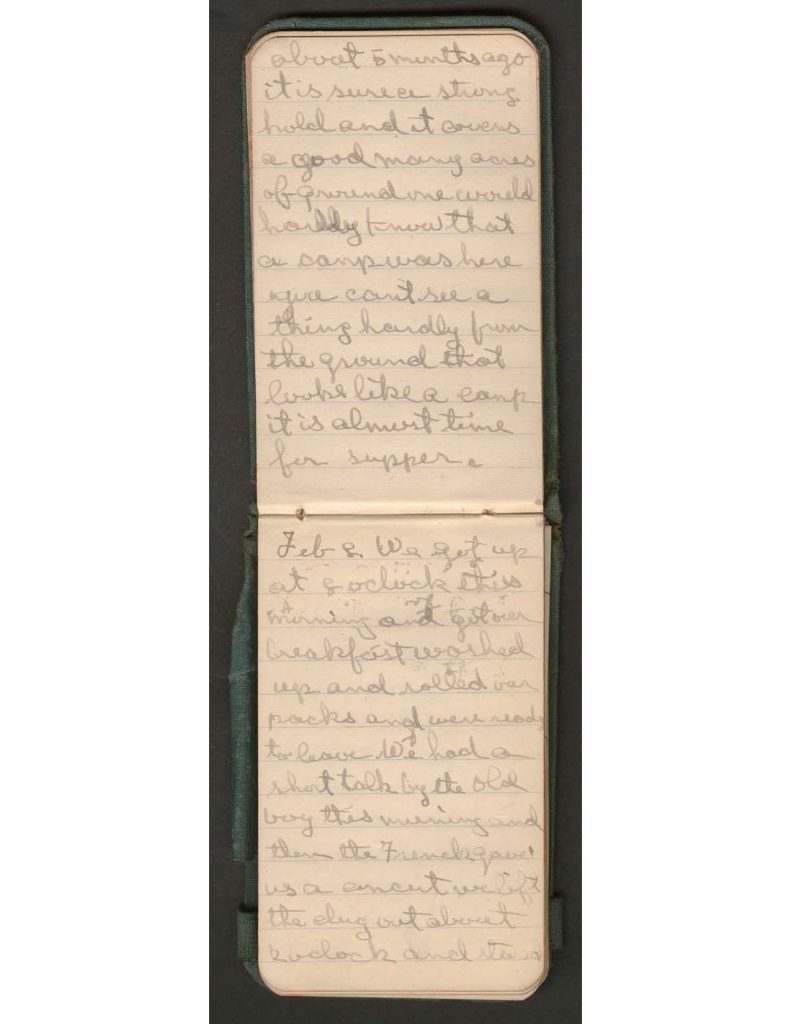 about 5 months ago
it is sure a strong
hold and it covers
a good many acres
of ground one would
hardly know that
a camp was here
you cant see a
thing hardly from
the ground that
looks like a camp
it is almost time
for supper.
Feb 8. We got up
at 8 oclock this
morning and got our
breakfast washed
up and rolled our
packs and were ready
to leave We had a
short talk by the old
boy this morning and
then the French gave
us a concert we left
the dug out about
oclock and